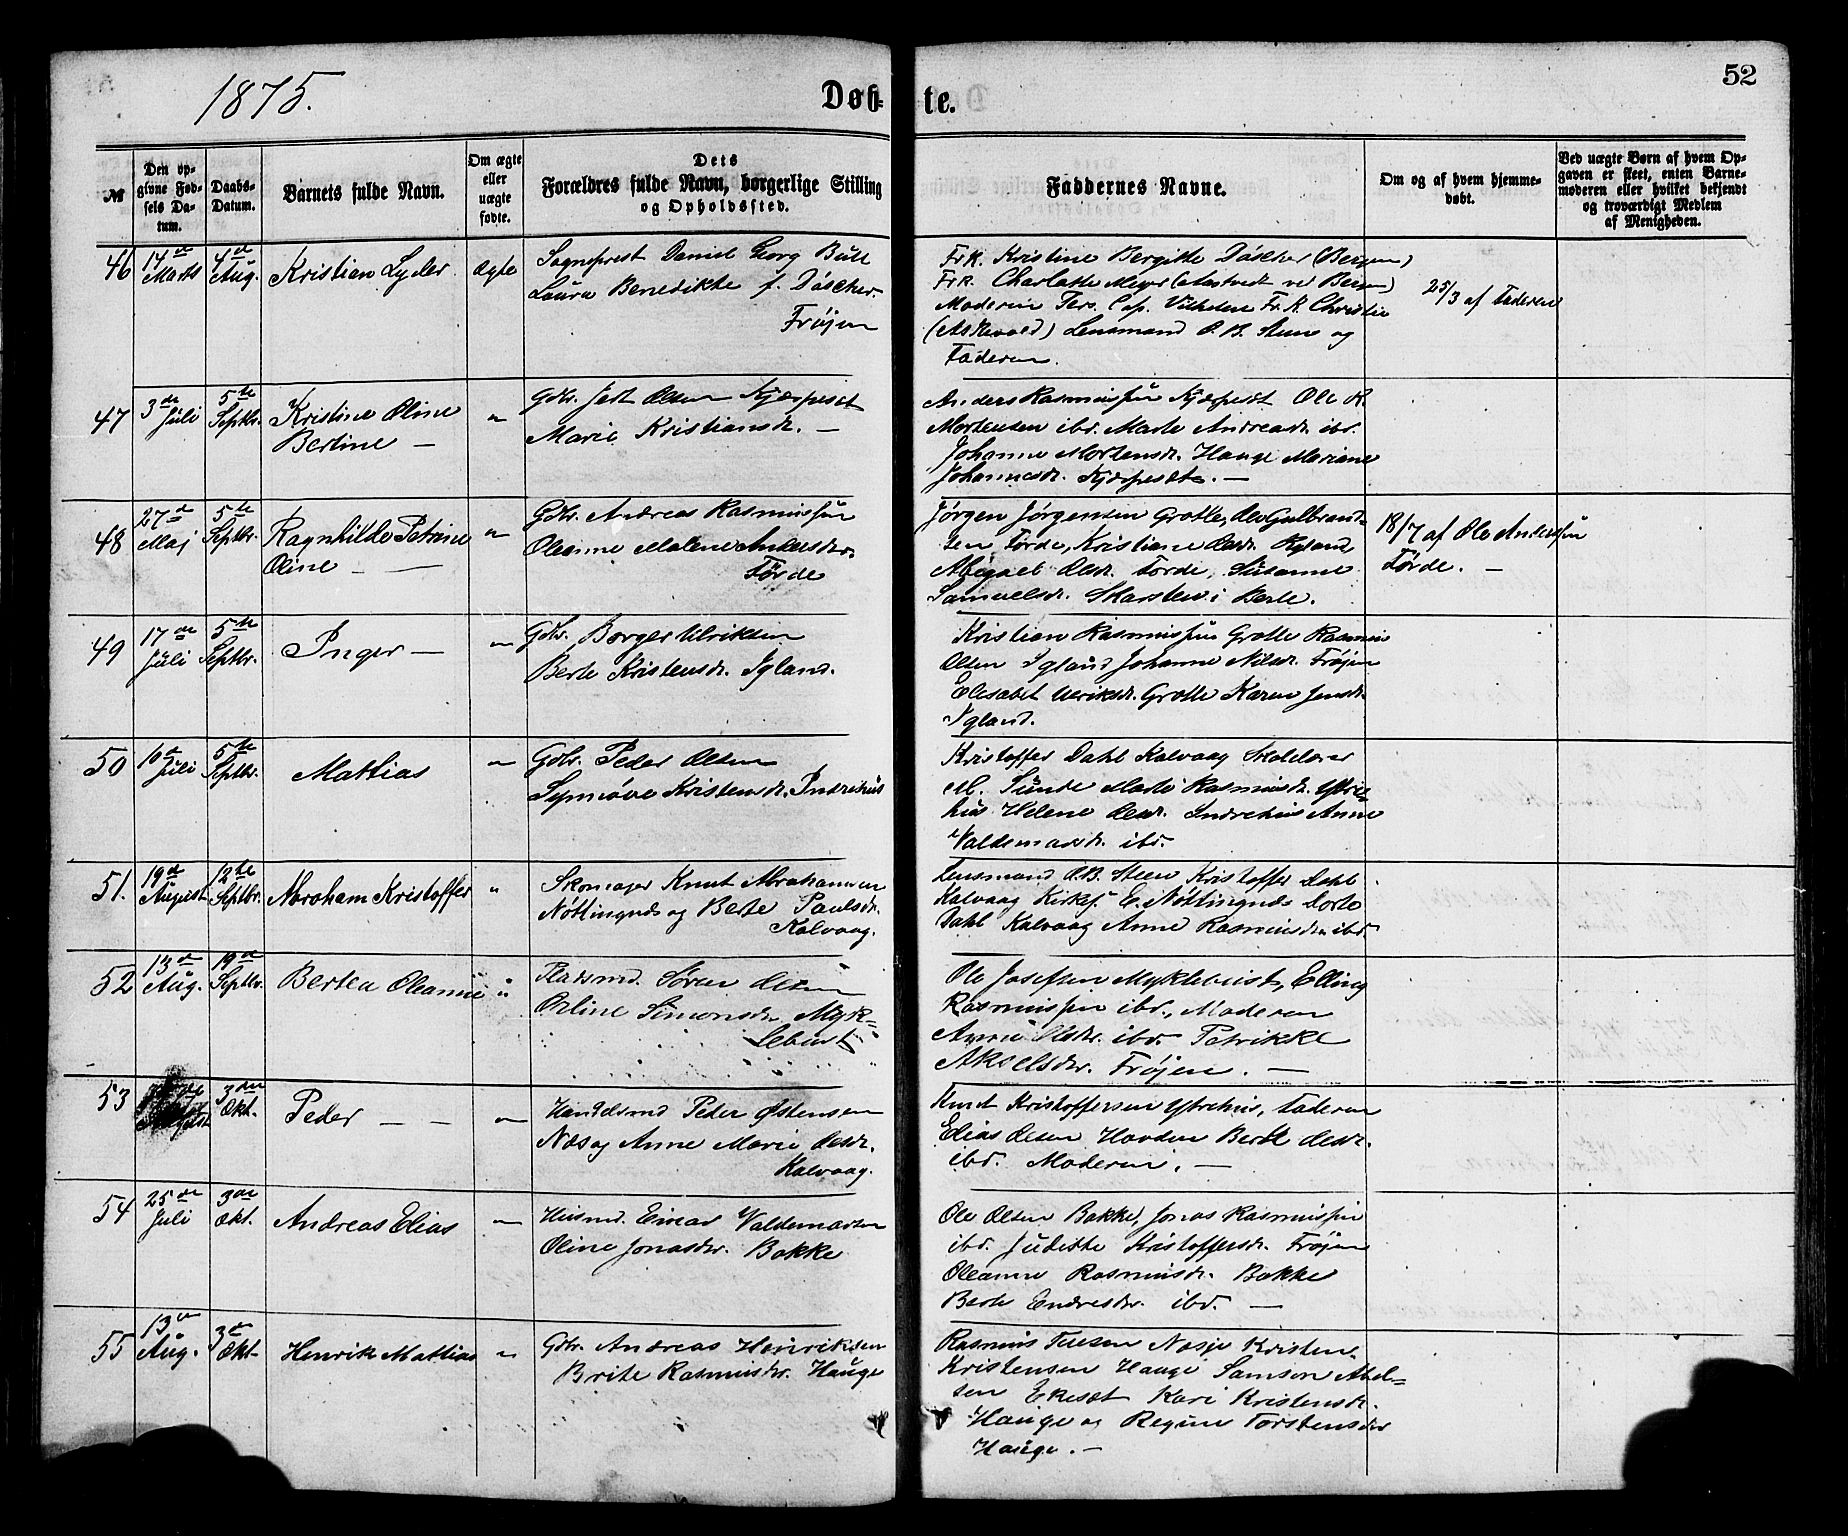 1875.
Døb-
te.
52
№
Den op-
givne Fød-
sels Da-
tum.
Daabs-
Datum.
Barnets fulde Navn.
Om ægte
eller
uægte
fødte.
Dets
Forældres fulde Navn, borgerlige Stilling
og Opholdssted.
Faddernes Navne.
Om og af hvem hjemme-
døbt.
Ved uægte Børn af hvem Op-
gaven er skeet, enten Barne-
moderen eller hvilket bekjendt
og troværdigt Medlem
af Menigheden.
46
14de
Marts
1ste
Aug.
Kristian Lyder
Ægte
Sogneprest Daniel Georg Bull
Laura Benedikte f. Döscher.
Frøjen
Frk. Kristine Bergitte Döscher (Bergen)
Frk. Charlotte Meyer ved Bergen)
Moderen Cap. Vilhelm Frk. Christie
(Askevold) Lensmand O. B. Steen og
Faderen.
25/3 af Faderen
47
3de
Juli
5te
Septbr.
Kristine Oline
Bertine —
"
Gdbr. Olsen
Marie Kristiansdr. —
Anders Rasmussen Ole R.
Mortensen ibd. Marte Andreasdr. ibr.
Johanne Mortensdr. Hauge Mariane
Johannesdr. —
48
27de
Maj
5te
Septbr.
Ragnhilde Petrine
Oline — —
"
Gdbr. Andreas Rasmussen
Oleanne Malene Andersdr.
Førde
Jørgen Jørgensen Grotle, Ole Gulbrand-
sen Førde, Kristiane Olsdr. Rylands
Abigael Olsdr. Førde, Susanne
Samuelsdr. Skarsten i Berle.
18/7 af Ole Anderssen
Førde. —
49
17de
Juli
5te
Septbr.
Inger —
"
Gdbr. Børger Ulriksen
Berte Kristensdr. Igland.
Kristian Rasmussen Grotle Rasmus
Olsen Igland Johanne Nilsdr. Frøjen
Elisabet Ulriksdr. Grotle Karen Jensdr.
Igland.
50
10de
Juli
5te
Septbr.
Mattias
"
Gdbr. Peder Olsen
Synnöve Kristensdr. Indrehus
Kristoffer Dahl Kalvaag Skolelærer
M. Sunde Marte Rasmusdr. Ytre-
hus Helene Olsdr. Indrehus Anne
Valdemarsdr. ibd.
51.
19de
August
12te
Septbr.
Abraham Kristoffer
"
Skomager Knut Abrahamsen
Nøttingnes og Berte Paulsdr.
Kalvaag.
Lensmand O. B. Steen Kristoffer Dahl
Kalvaag Kirkesj. E. Nøttingnes Dorte
Dahl Kalvaag Anne Rasmusdr. ibd.
52
13de
Aug.
19de
Septbr.
Bertea Oleanne
"
Pladsmd. Søren Olsen
Oline Simonsdr. Myk-
lebust
Ole Josefsen Myklebust, Elling
Rasmussen ibd., Moderen
Anne Olsdr. ibd. Petrikke
Akselsdr. Frøjen. —
53
August
3die
Okt.
Peder — —
"
Handelsmd. Peder Østensen
Næs og Anne Marie Olsdr.
Kalvaag.
Knut Kristoffersen Ytrehus, Faderen
Elias Olsen Hovden Berte Olsdr.
ibd. Moderen. —
54
25de
Juli
3die
Okt.
Andreas Elias
"
Husmd. Einar Valdemarsen
Oline Jonasdr. Bakke
Ole Olsen Bakke, Jonas Rasmussen
ibd. Juditte Kristoffersdr. Frøjen
Oleanne Rasmusdr. Bakke
Berte Endresdr. ibd. —
55
13de
Aug.
3de
Okt.
Henrik Mattias
"
Gdbr. Andreas Henriksen
Brite Rasmusdr. Hauge
Rasmus Næsje Kristen
Kristensen Hauge Samson Abel-
sen Ekeset Kari Kristensdr.
Hauge og Regine Torstensdr.
Hauge. —